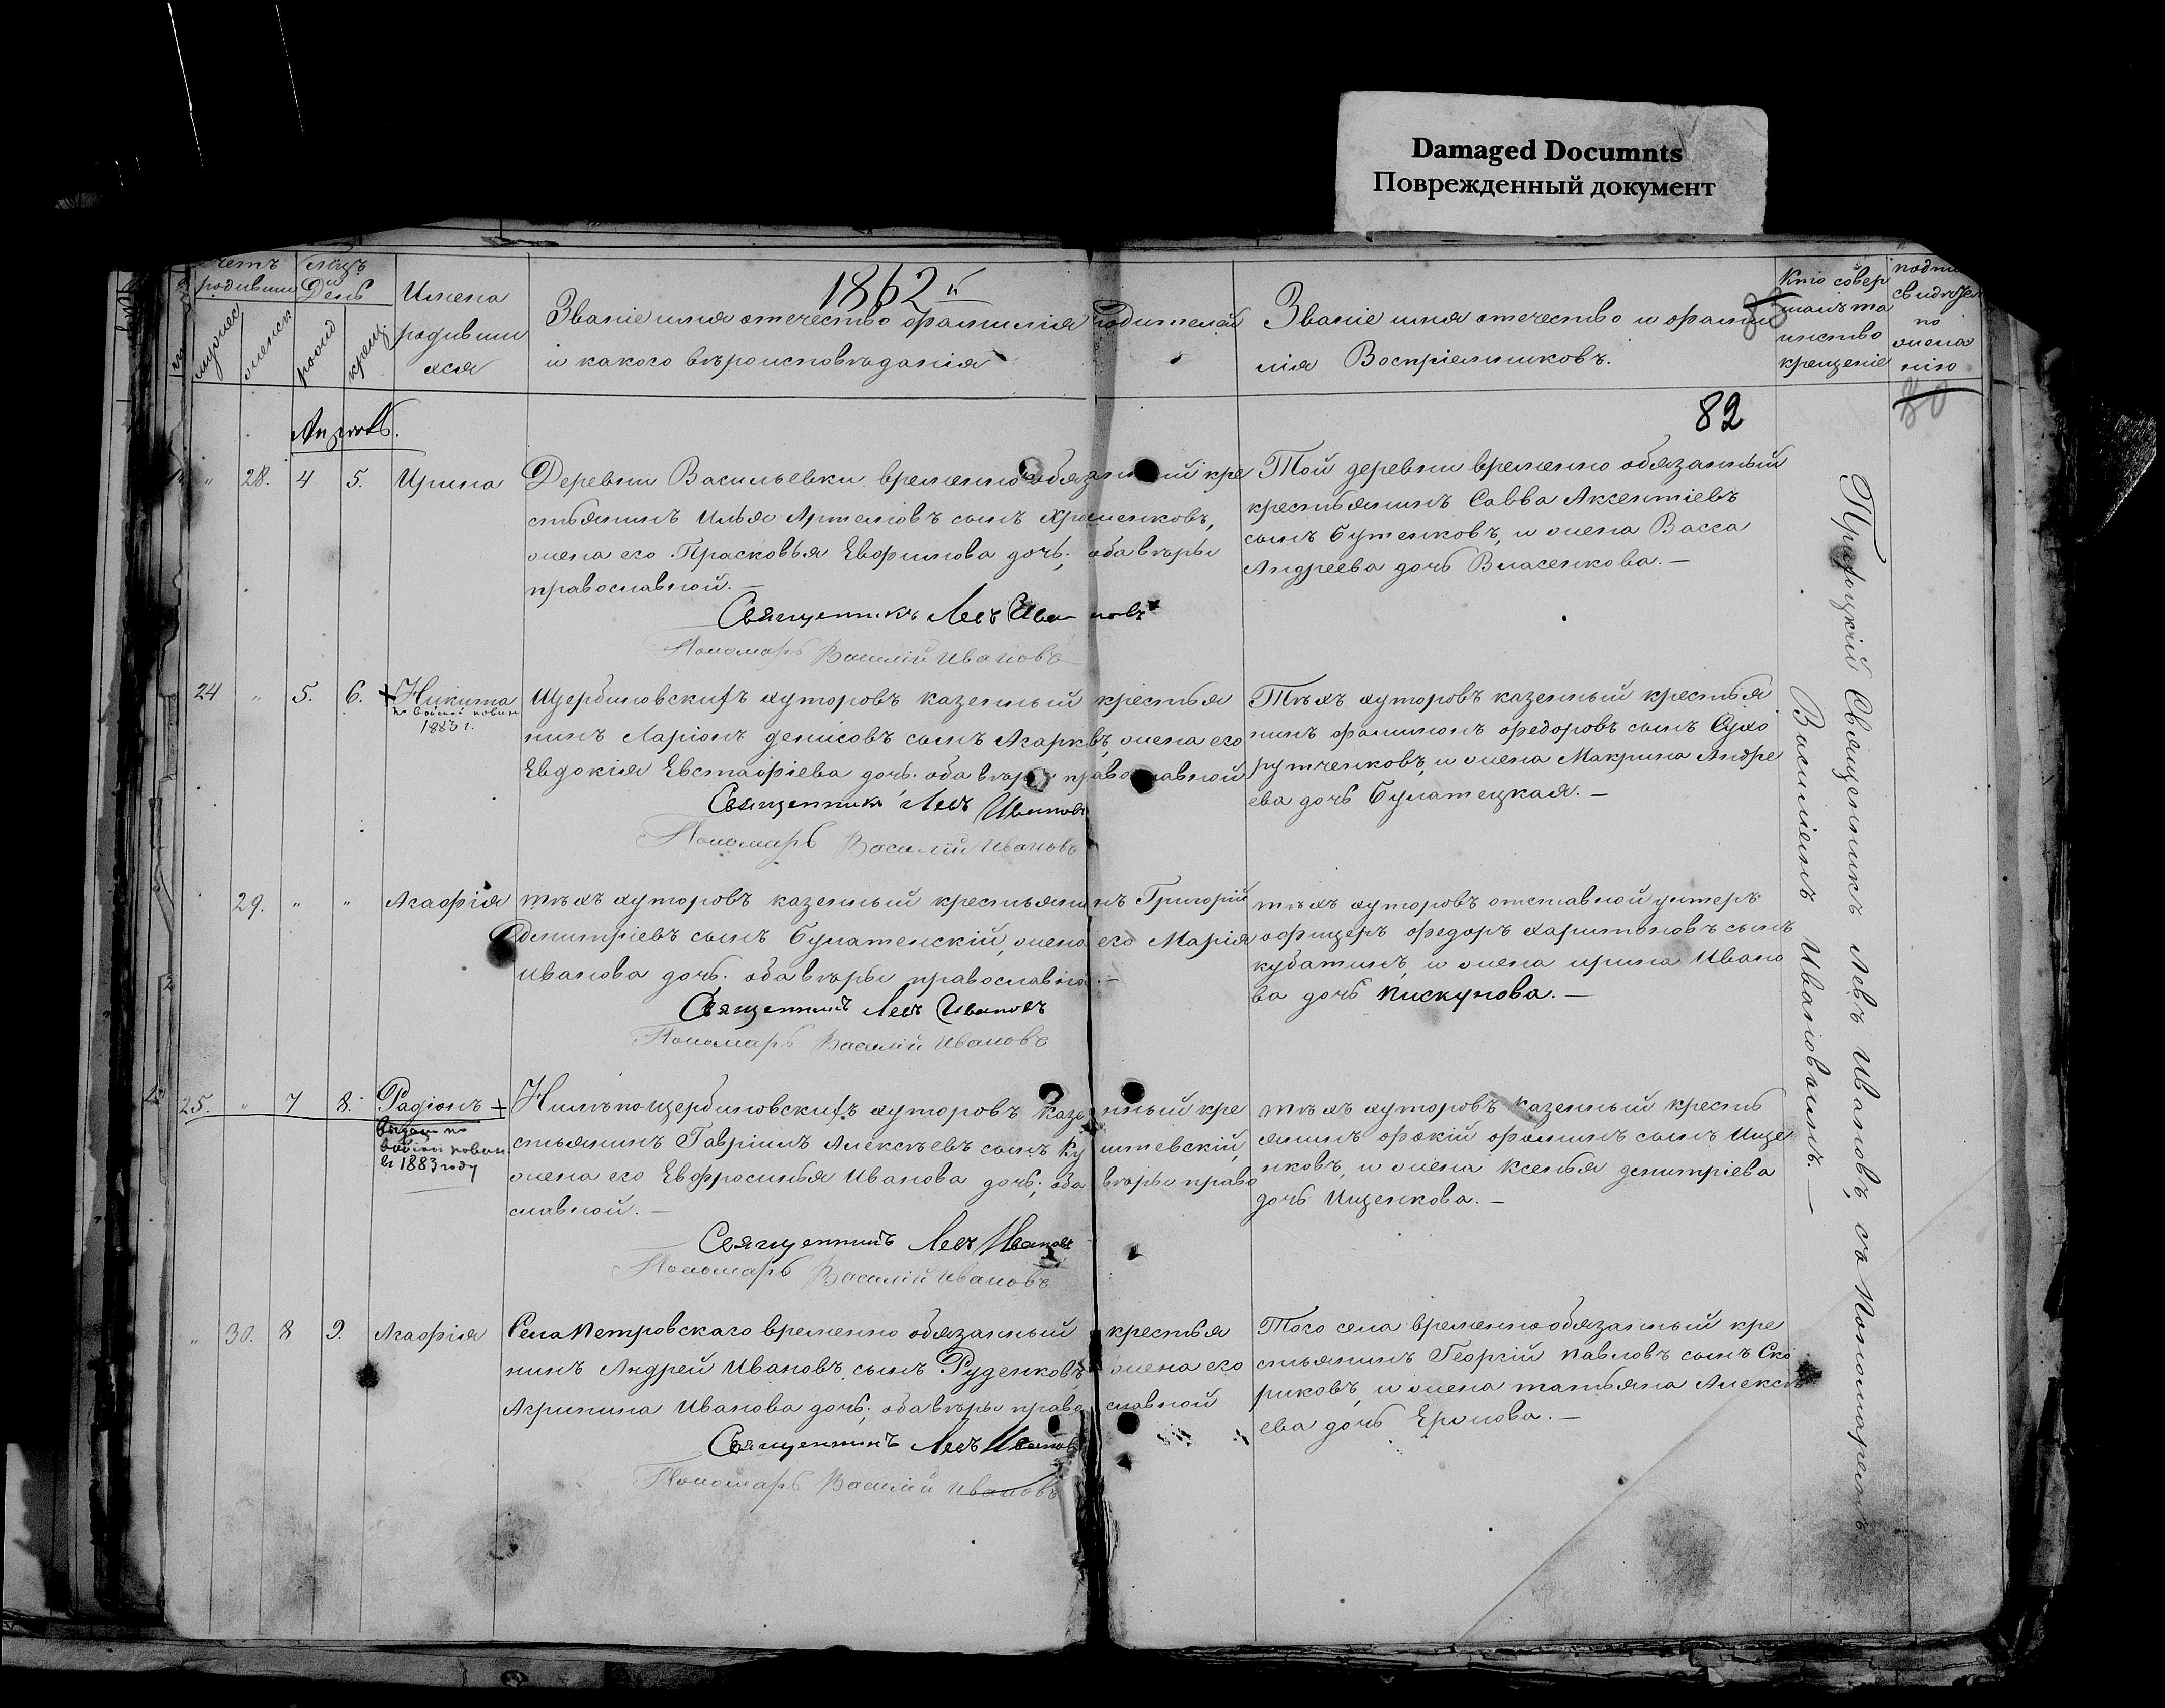 Damaged Documnts
Поврежденный документ
1862
счетъ родивши
мѣцъ и День
мужеск
женск
рожд
крещ.
Имена
родивши
хся
Званіе имя отечество фамилія родителей
и какого вѣроисповѣданія
Званіе имя отечество и фами
лія Воспріемниковъ.
Кто совер
шалъ та
инство
крещеніе
свидѣтел
по
желa
нію
82
80
Апрель.
" 28. 4 5. Ирина
Деревни Васильевки временно обязанный кре
стьянинъ Илья Артемовъ сынъ Хроменковъ,
жена его Прасковья Евфимова дочь; оба вѣры
православной. —
Священникъ Левъ Ивановъ
Пономарь Василій Ивановъ
Той деревни временно обязанный
крестьянинъ Савва Аксентіевъ
сынъ Бутенковъ, и жена Васса
Андреева дочь Власенкова. —
24 " 5. 6. Никита
1883 г.
Щербиновскихъ хуторовъ казенный крестья
нинъ Ларіонъ денисовъ сынъ Агарквъ, жена его
Евдокія Евстафіева дочь. оба вѣры православной
Священникъ Левъ Ивановъ
Пономарь Василій Ивановъ
Тѣхъ хуторовъ казенный крестья
нинъ филимонъ федоровъ сынъ Сухо
рутченковъ, и жена Макрина Андре
ева дочь Булатецкая. —
29. " " Агафія
тѣхъ хуторовъ казенный крестьянинъ Григорій
дмитріевъ сынъ Булатенскій, жена его Марія
Иванова дочь. оба вѣры православной. —
Священникъ Левъ Ивановъ
Пономарь Василій Ивановъ
тѣхъ хуторовъ отставной унтеръ
офицеръ федоръ харитоновъ сынъ
кубатинъ, и жена ирина Ивано
ва дочь пискунова. —
25. " 7 8. Радіонъ
выдан по
воинск повин.
въ 1883 году
Нижнощербиновскихъ хуторовъ казенный кре
стьянинъ Гавріилъ Алексѣевъ сынъ Ку шневскій,
жена его Евфросинья Иванова дочь; оба вѣры право
славной. —
Священникъ Левъ Ивановъ
Пономарь Василій Ивановъ
тѣхъ хуторовъ казенный кресть
янинъ фокій фоминъ сынъ Ище
нковъ, и жена Ксенья дмитріева
дочь Ищенкова. —
" 30. 8 9. Агафія
Села Петровскаго временно обязанный крестья
нинъ Андрей Ивановъ сынъ Руденковъ, жена его
Агрипина Иванова дочь; оба вѣры православной
Священникъ Левъ Ивановъ
Пономарь Василій Ивановъ
Того села временнообязанный кре
стьянинъ Георгій павловъ сынъ Ско
риковъ, и жена татьяна Алексѣ
ева дочь Ерохова. —
Священникъ Левъ Ивановъ, съ Пономаремъ
Василіемъ Ивановымъ. —